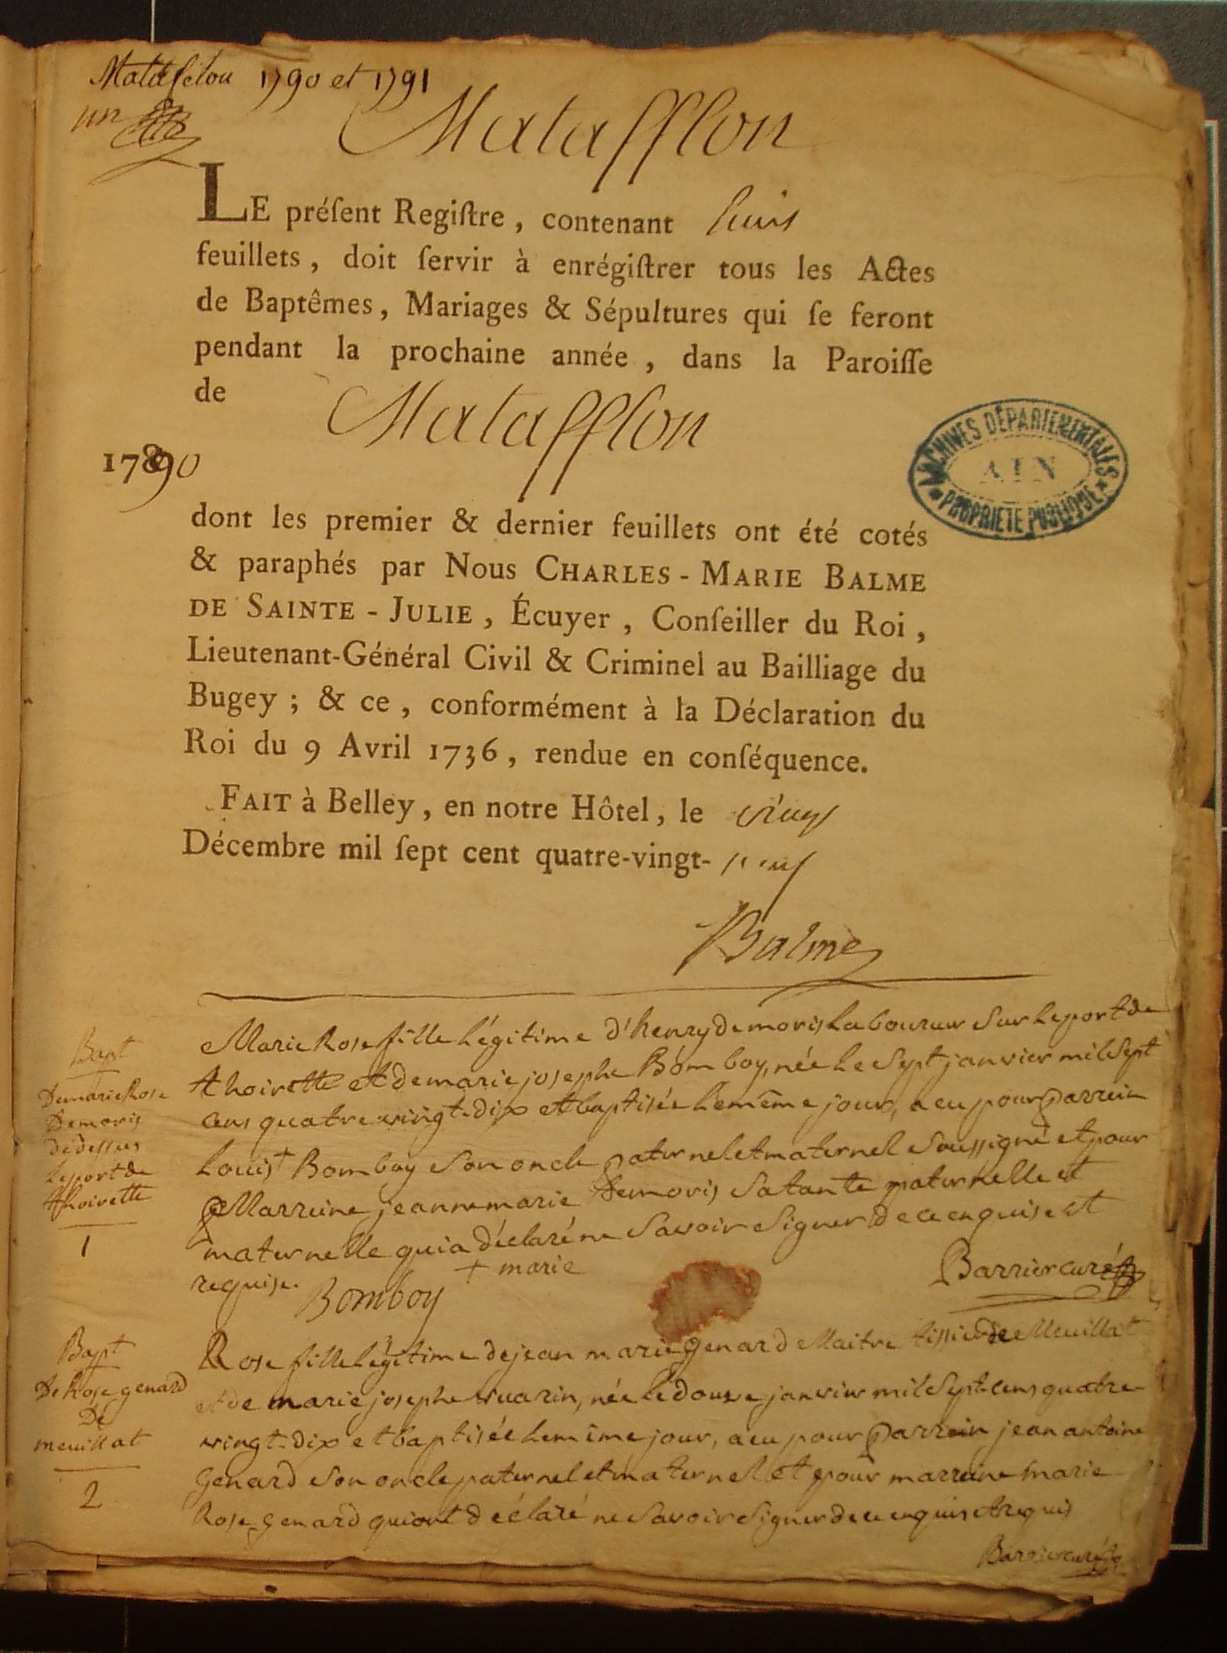 Matafelou 1790 et 1791
un
Matafflon
LE préſent Regiſtre, contenant huit
feuillets, doit ſervir à enrégiſtrer tous les Actes
de Baptêmes, Mariages & Sépultures qui ſe feront
pendant la prochaine année, dans la Paroiſſe
de Matafflon
1790
ARCHIVES DÉPARTEMENTALES
AIN
PROPRIETE PUBLIQUE
dont les premier & dernier feuillets ont été cotés
& paraphés par Nous CHARLES-MARIE BALME
DE SAINTE-JULIE, Écuyer, Conſeiller du Roi,
Lieutenant-Général Civil & Criminel au Bailliage du
Bugey; & ce, conformément à la Déclaration du
Roi du 9 Avril 1736, rendue en conſéquence.
FAIT à Belley, en notre Hôtel, le
Décembre mil ſept cent quatre-vingt-neuf
Balme
Bapt
De marie Rose
Demoris
de dessus
le port de
thoirette
1
Marie Rose fille légitime d'henry demoris laboureur sur le port de
thoirette et de marie josephe Bomboy, née le sept janvier mil sept
cens quatre vingt-dix et baptisée le même jour, a eu pour parrein
louis + Bomboy son oncle paternel et maternel soussigné et pour
Marreine jeanne marie Demoris sa tante paternelle et
maternelle qui a déclaré ne savoir signer de ce enquise et
requise.
+ marie
Bomboy
Barrier curé
Bapt
De Rose genard
De
meuillat
2
Rose fille légitime de jean marie genard Maitre tissier de Meuillat
et de marie josephe vuarin, née le douze janvier mil sept cens quatre
vingt-dix et baptisée le même jour, a eu pour parrein jean antoine
genard son oncle paternel et maternel et pour marreine marie
Rose genard qui ont déclaré ne savoir signer de ce enquis et requis
Barrier curé